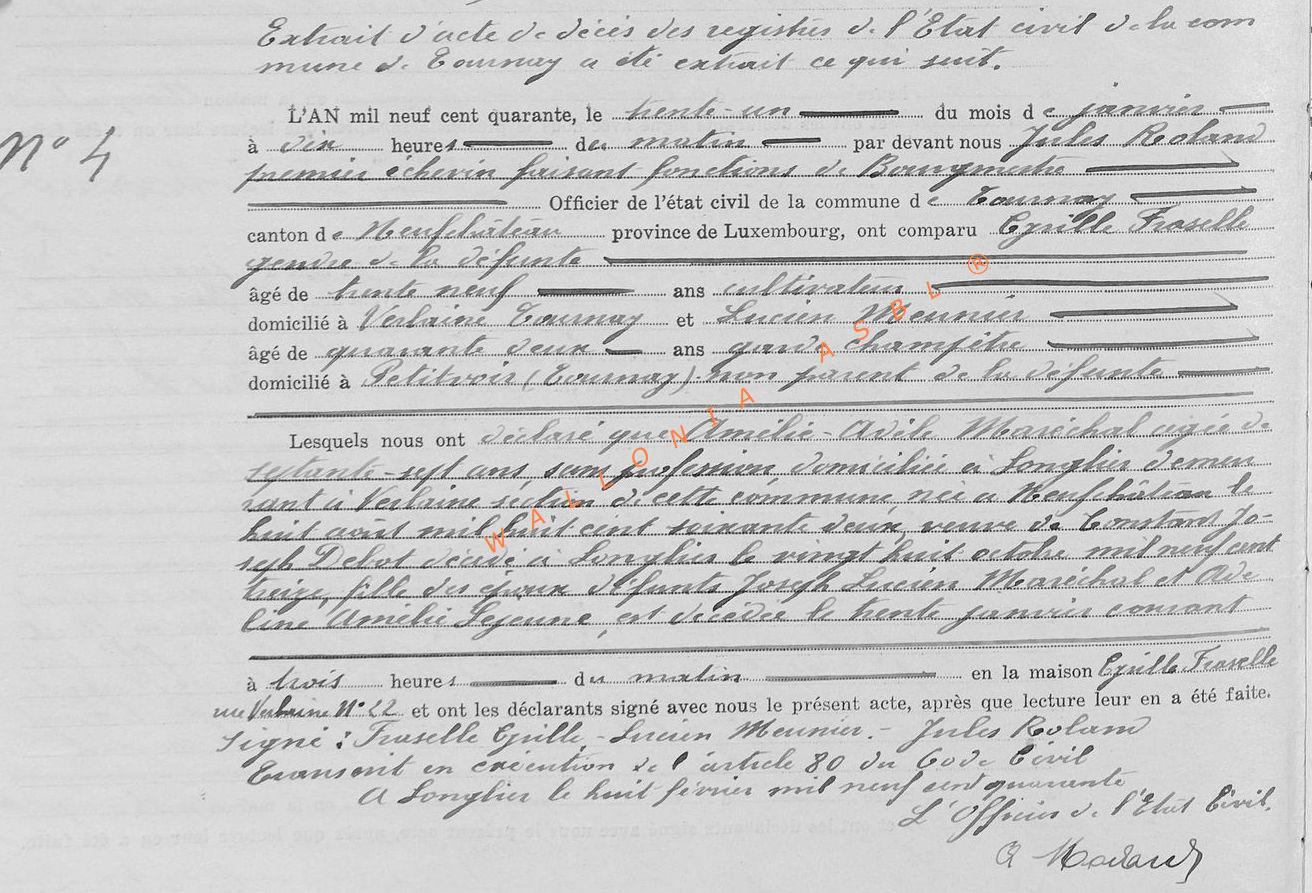 Extrait d'acte de décès des registres de l'Etat civil de la com
mune de Tournay a été extrait ce qui suit.
L'AN mil neuf cent quarante, le trente-un du mois de janvier
N° 4
à dix heures du matin par devant nous Jules Roland
premier échevin faisant fonctions de Bourgmestre
Officier de l'état civil de la commune de Tournay
canton de Neufchâteau province de Luxembourg, ont comparu Cyrille Fraselle
gendre de la défunte
âgé de trente neuf ans cultivateur
domicilié à Verlaine Tournay et Lucien Meunier
âgé de quarante deux ans garde champêtre
domicilié à Petitvoir (Tournay) non parent de la défunte
Lesquels nous ont déclaré que Amélie-Adèle Maréchal agée de
septante-sept ans, sans profession, domiciliée à Longlier demeu
rant à Verlaine section de cette commune née à Neufchâteau le
huit août mil huit cent soixante deux, veuve de Constant Jo-
seph Debot décédé à Longlier le vingt huit octobre mil neuf cent
treize, fille des époux défunts Joseph Lucien Maréchal et Ade
line Amélie Lejeune, est décédée le trente janvier courant
à trois heures du matin en la maison Cyrille Fraselle
rue Verlaine N° 22 et ont les déclarants signé avec nous le présent acte, après que lecture leur en a été faite.
Signé: Fraselle Cyrille - Lucien Meunier. - Jules Roland
Transcrit en exécution de l'article 80 du Code Civil
A Longlier le huit février mil neuf cent quarante
L'Officier de l'Etat Civil.
WALLONIA ASBL ®